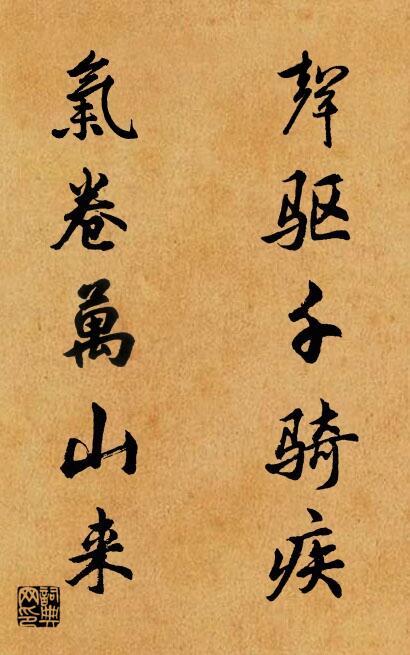 聲驱千骑疾
氣卷萬山来
詞典网印